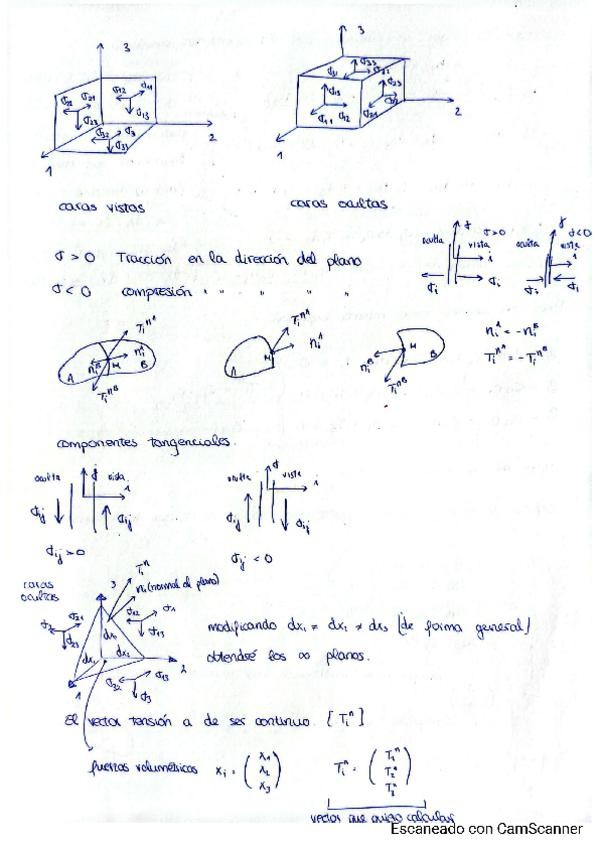 3
2
1
σ12 σ11
σ13
σ22 σ21
σ23
σ32
σ33
3
2
1
σ33
σ31 σ32
σ13
σ11 σ12
σ23
σ21
caras vistas
caras ocultas.
σ > 0 Tracción en la dirección del plano
σ < 0 compresión " " " " "
oculta vista σ>0
i
σi σi
oculta vista σ<0
i
σi σi
Ti^nA
ni^A
ni^B
M
A B
Ti^nB
Ti^nA
ni^A
M
A
M
B
ni^B
Ti^nB
ni^A = -ni^B
Ti^nA = -Ti^nB
componentes tangenciales.
oculta j vista
i
σij σij
σij > 0
oculta vista
i
σij σij
σij < 0
caras
ocultas
3
Ti^n
ni (normal del plano)
σ12 σ1
σ13
σ21
σ23
dx3
dx1 dx2
1 2
σ32
σ3
modificando dx1 ≠ dx2 ≠ dx3 (de forma general)
obtendré los ∞ planos.
El vector tensión a de ser continuo. [Ti^n]
fuerzas volumétricas xi = (x1 x2 x3)
Ti^n = (T1^n T2^n T3^n)
vector que quiero calcular
Escaneado con CamScanner